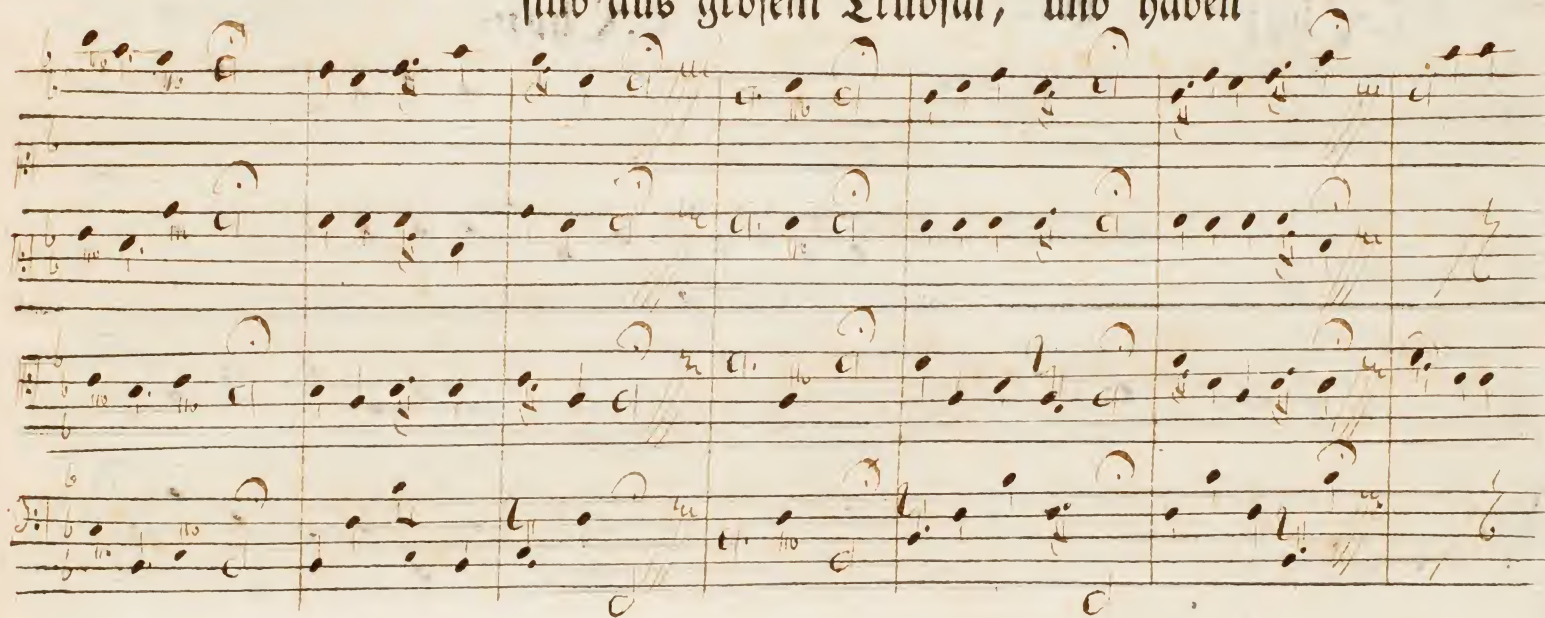 sind aus grosem Trübsal, und haben